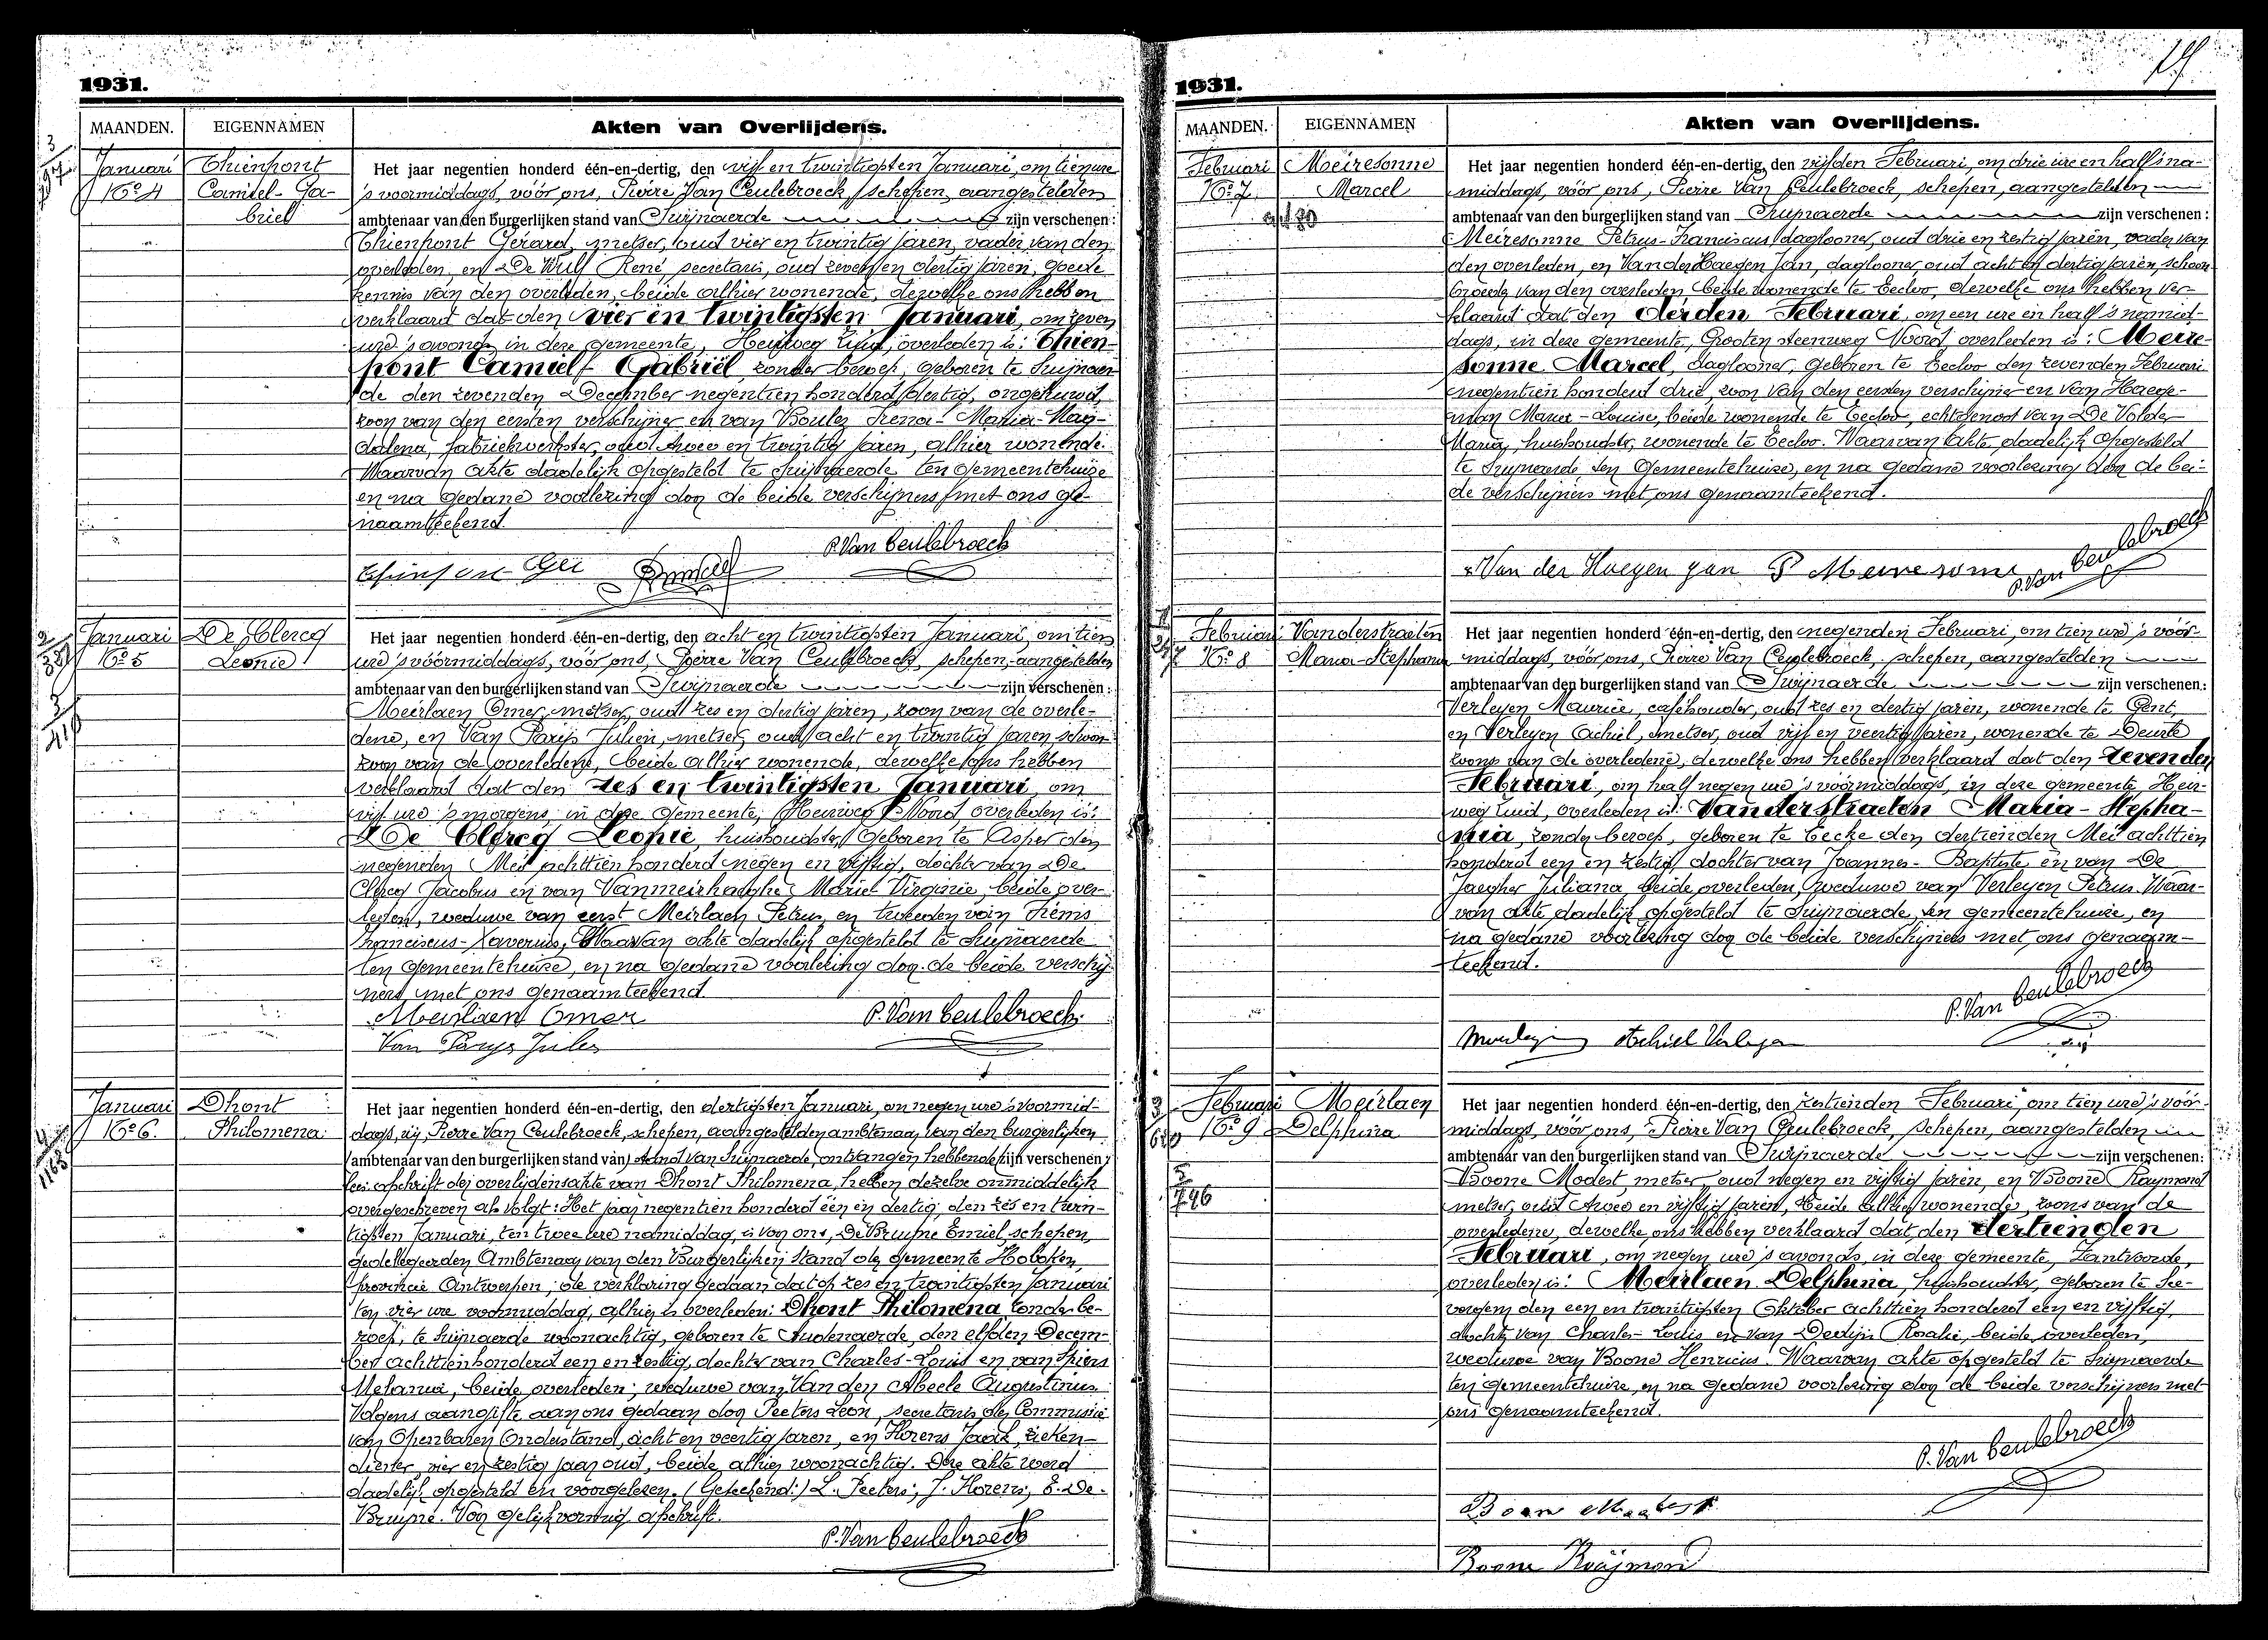 1931.
MAANDEN.
EIGENNAMEN
Akten van Overlijdens.
Januari
No 4
Thienpont
Camiel-Ga-
briel
Het jaar negentien honderd één-en-dertig, den vijf en twintigsten Januari, om tien ure
's voormiddags, vóór ons, Pierre Van Ceulebroeck, schepen, aangestelden
ambtenaar van den burgerlijken stand van Swijnaerde zijn verschenen:
Thienpont Gérard, metser, oud vier en twintig jaren, vader van den
overleden, en De Wulf René, secretaris, oud zeven en dertig jaren, goede
kennis van den overleden, beide alhier wonende, dewelke ons hebben
verklaard dat den vier en twintigsten Januari, om zeven
ure 's avonds in deze gemeente, Heirweg Zuid, overleden is: Thien-
pont Camiel Gabriël zonder beroep, geboren te Swijnaer-
de den zevenden December negentien honderd dertig, ongehuwd,
zoon van den eersten verschijner en van Maria-Mag-
dalena, fabriekwerkster, oud twee en twintig jaren, alhier wonende.
Waarvan akte dadelijk opgesteld te Swijnaerde ten gemeentehuize
en na gedane voorlezing door de beide verschijners met ons ge-
naamteekend.
P. Van Ceulebroeck
Januari
No 5
De Clercq
Leonie
Het jaar negentien honderd één-en-dertig, den acht en twintigsten Januari, om tien
ure 's vóórmiddags, vóór ons, Pierre Van Ceulebroeck, schepen, aangestelden
ambtenaar van den burgerlijken stand van Swijnaerde zijn verschenen:
Meirlaen Omer, metser, oud zes en dertig jaren, zoon van de overle-
dene, en Van Parijs Julien, metser, oud acht en twintig jaren, schoon-
zoon van de overledene, beide alhier wonende, dewelke ons hebben
verklaard dat den zes en twintigsten Januari, om
vijf ure 's morgens, in deze gemeente, Heirweg Noord overleden is:
De Clercq Leonie, huishoudster, geboren te Asper den
negenden Mei achttien honderd negen en vijftig, dochter van De
Clercq Jacobus en van Vanmeirhaeghe Marie Virginie, beide over-
leden, weduwe van eerst Meirlaen Petrus, en tweeden van Fiems
Franciscus-Xaverius, Waarvan akte dadelijk opgesteld te Swijnaerde
ten gemeentehuize, en na gedane voorlezing door de beide verschij-
ners met ons genaamteekend.
Meirlaen Omer
P. Van Ceulebroeck
Van Parys Jules
Januari
No 6.
Dhont
Philomena
Het jaar negentien honderd één-en-dertig, den dertigsten Januari, om negen ure 's voormid-
dags, wij, Pierre Van Ceulebroeck, schepen, aangestelden ambtenaar van den burgerlijken
ambtenaar van den burgerlijken stand van stand van Swijnaerde, ontvangen hebbende zijn verschenen:
een afschrift der overlijdensakte van Dhont Philomena, hebben dezelve onmiddelijk
overgeschreven als volgt: Het jaar negentien honderd één en dertig, den zes en twin-
tigsten Januari, ten twee ure namiddag, is voor ons, De Bruyne Emiel, schepen,
gedelegeerden Ambtenaar van den Burgerlijken stand der gemeente Hoboken,
provincie Antwerpen, de verklaring gedaan dat op zes en twintigsten Januari
ten vier ure voormiddag, alhier is overleden: Dhont Philomena zonder be-
roep, te Swijnaerde woonachtig, geboren te Audenaerde, den elfden Decem-
ber achttienhonderd een en zestig, dochter van Charles-Louis en van Spiers
Melania, beide overleden; weduwe van Van den Abeele Augustinus
Volgens aangifte aan ons gedaan door Peeters Leon, secretaris der Commissie
van Openbaren Onderstand, acht en veertig jaren, en Horens Jack, zieken-
diener, vier en zestig jaar oud, beide alhier woonachtig. Deze akte werd
dadelijk opgesteld en voorgelezen. (Geteekend:) L. Peeters; J. Horens; E. De-
Bruyne. Voor gelijkvormig afschrift.
P. Van Ceulebroeck
1931.
MAANDEN.
EIGENNAMEN
Akten van Overlijdens.
Februari
No 7
Meiresonne
Marcel
Het jaar negentien honderd één-en-dertig, den vijfden Februari, om drie ure en half 's na-
middags, vóór ons, Pierre Van Ceulebroeck, schepen, aangestelden
ambtenaar van den burgerlijken stand van Swijnaerde zijn verschenen:
Meiresonne Petrus-Franciscus, daglooner, oud drie en zestig jaren, vader van
den overleden, en Van der Haegen Jan, daglooner, oud acht en dertig jaren, schoon-
broeder van den overleden, beide wonende te Eecloo, dewelke ons hebben ver-
klaard dat den derden Februari, om een ure en half 's namid-
dags, in deze gemeente, Grooten steenweg Noord, overleden is: Meire-
sonne Marcel, daglooner, geboren te Eecloo den zevenden Februari
negentien honderd drie, zoon van den eersten verschijner en van Haege-
man Marie-Louise, beide wonende te Eecloo, echtgenoot van De Volder
Maria, huishoudster, wonende te Eecloo. Waarvan akte, dadelijk opgesteld
te Swijnaerde ten gemeentehuize, en na gedane voorlezing door de bei-
de verschijners met ons genaamteekend.
Van der Haegen Jan
P Meiresonne
P. Van Ceulebroeck
Februari
No 8
Vanderstraeten
Maria-Stephania
Het jaar negentien honderd één-en-dertig, den negenden Februari, om tien ure 's vóór-
middags, vóór ons, Pierre Van Ceulebroeck, schepen, aangestelden
ambtenaar van den burgerlijken stand van Swijnaerde zijn verschenen:
Verleyen Maurice, caféhouder, oud zes en dertig jaren, wonende te Gent,
en Verleyen Achiel, metser, oud vijf en veertig jaren, wonende te Deurle
zoons van de overledene, dewelke ons hebben verklaard dat den zevenden
Februari, om half negen ure 's vóórmiddags, in deze gemeente, Heir-
weg Zuid, overleden is: Vanderstraeten Maria-Stepha-
nia, zonder beroep, geboren te Eecke den dertienden Mei achttien
honderd een en zestig, dochter van Joannes-Baptiste en van De
Jaegher Juliana, beide overleden, weduwe van Verleyen Petrus. Waar-
van akte dadelijk opgesteld te Swijnaerde, ten gemeentehuize, en
na gedane voorlezing door de beide verschijners met ons genaam-
teekend.
P. Van Ceulebroeck
Achiel Verleyen
Februari
No 9
Meirlaen
Delphina
Het jaar negentien honderd één-en-dertig, den zestienden Februari, om tien ure 's vóór-
middags, vóór ons, Pierre Van Ceulebroeck, schepen, aangestelden
ambtenaar van den burgerlijken stand van Swijnaerde zijn verschenen:
Boone Modest, metser, oud negen en vijftig jaren, en Boone Raymond
metser, oud twee en vijftig jaren, beide alhier wonende, zoons van de
overledene, dewelke ons hebben verklaard dat den dertienden
Februari, om negen ure 's avonds, in deze gemeente, Zantvoorde,
overleden is: Meirlaen Delphina, huishoudster, geboren te See-
vergem den een en twintigsten Oktober achttien honderd een en vijftig,
dochter van Charles-Louis en van Rosalie, beide overleden,
weduwe van Boone Henricus. Waarvan akte opgesteld te Swijnaerde
ten gemeentehuize, en na gedane voorlezing door de beide verschijners met
ons genaamteekend.
P. Van Ceulebroeck
Boone Raijmond